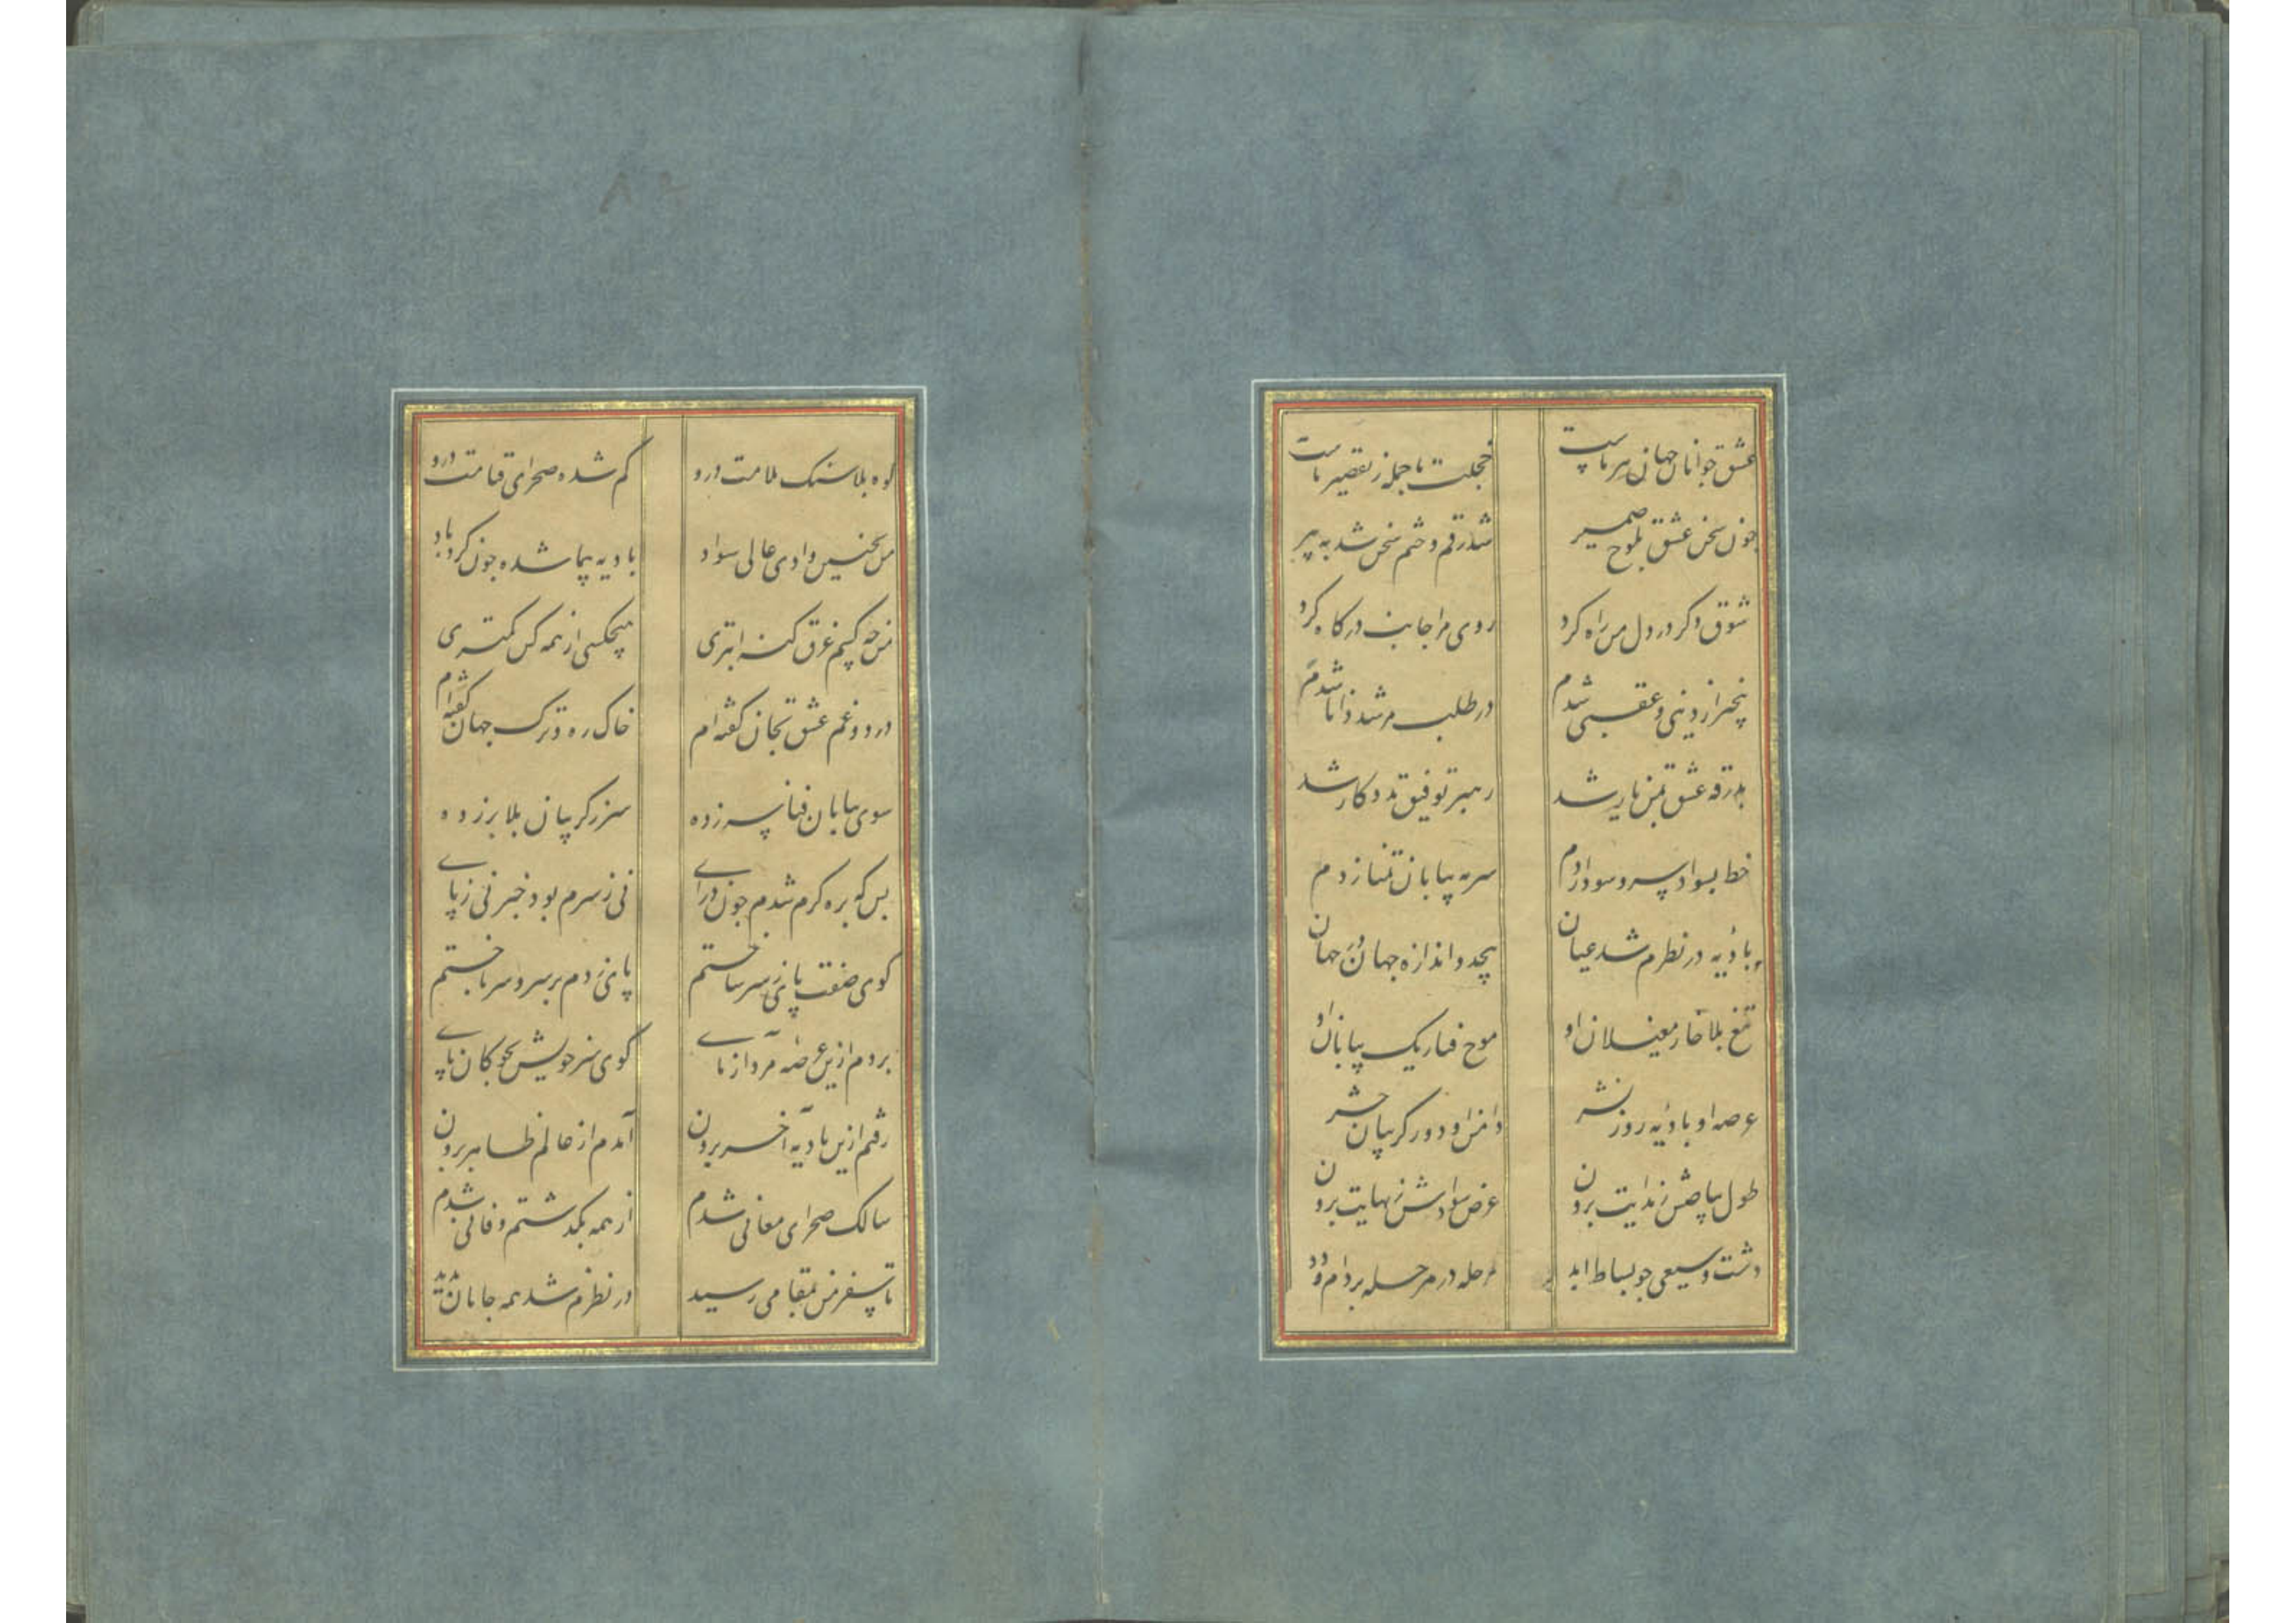 عشق جوانان جهان پیر ماست
خجلت ما جمله ز تقصیر ماست
چون سخن عشق بلوح ضمیر
شد رقم و ختم سخن شد به پیر
شوق دکر در دل من راه کرد
روی مرا جانب درکاه کرد
بیخبر از دینی و عقبی شدم
در طلب مرشد دانا شدم
بدرقه عشق بمن یار شد
رهبر توفیق مددکار شد
خط بسواد سر و سودا زدم
سر به بیابان تمنا زدم
بادیه در نظرم شد عیان
بیحد و اندازه جهان جهان
تیغ بلا خار مغیلان او
موج فنا ریک بیابان او
عرصه او بادیه روز نشر
دامن او دور کریبان حشر
طول بیاضش ز بدایت برون
عرض سوادش ز نهایت برون
دشت وسیعی چو بساط ابد
مرحله در مرحله بر دام و دد
کوه بلا سنک ملامت درو
کم شده صحرای قیامت درو
من بچنین وادی عالی سواد
بادیه پیما شده چون کردباد
من چه کسم غرق کنه ابتری
هیچکسی از همه کس کمتری
درد و غم عشق بجان کفته ام
خاک ره و ترک جهان کفته ام
سوی بیابان فنا پر زده
سر ز کریبان بلا بر زده
بس که بره کرم شدم چون درای
نی ز سرم بود خبر نی ز پای
کوی صفت پای ز سر ساختم
پای زدم بر سر و سر باختم
بردم ازین عرصه مرد آزمای
کوی سر خویش بچوکان پای
رفتم ازین بادیه آخر برون
آمدم از عالم ظاهر برون
سالک صحرای معانی شدم
از همه بکذشتم و فانی شدم
تا سفر من بمقامی رسید
در نظرم شد همه جانان پدید